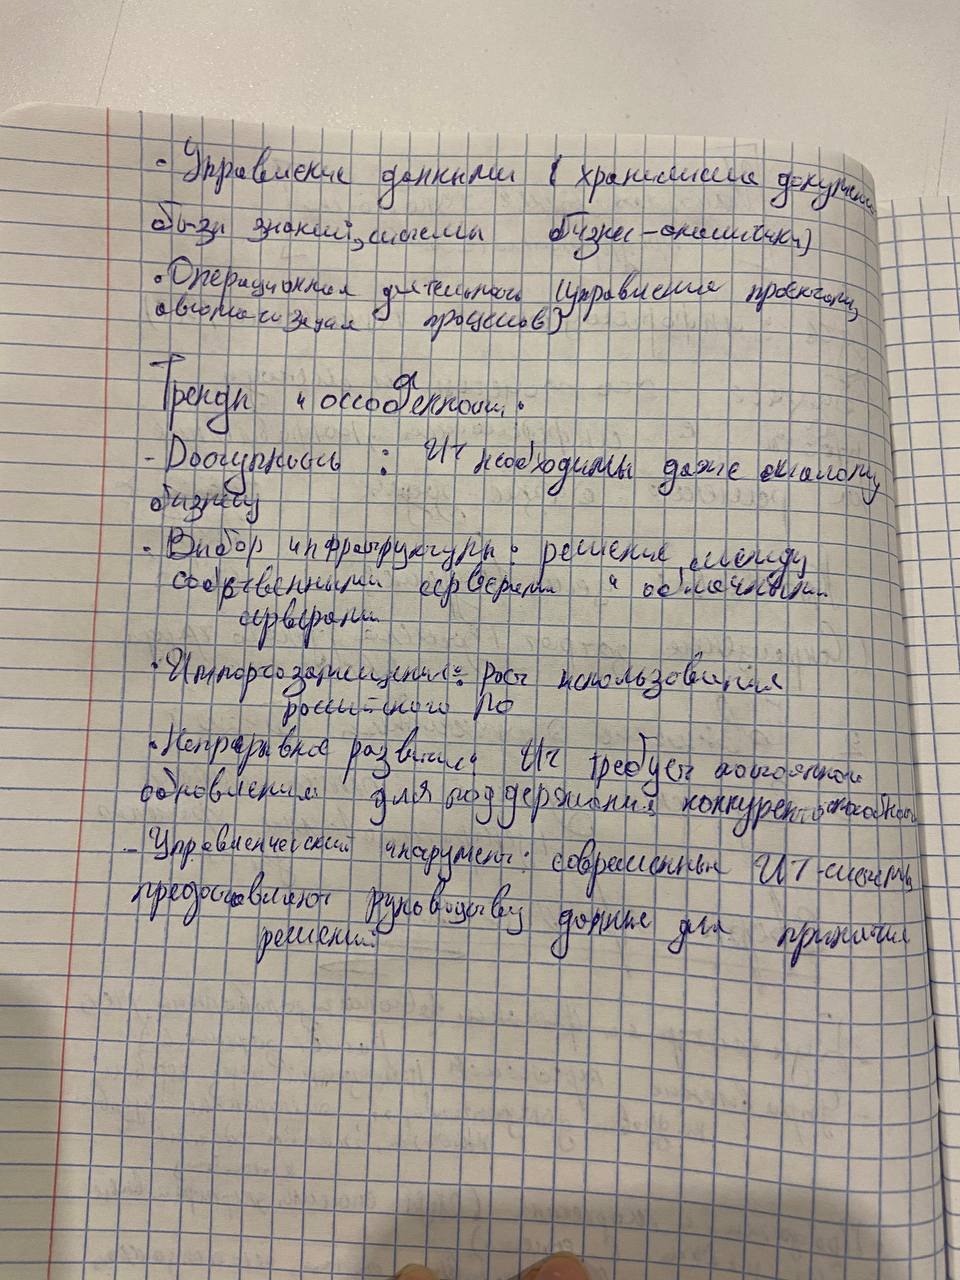 · Управление данными ( хранилища докумен
базы знаний, системы бизнес-аналитики)
· Операционная деятельность (управление проектами,
автоматизация процессов)
Тренды и особенности:
- Доступность : ИТ необходимы даже малому
бизнесу
· Выбор инфраструктуры: решение между
собственными серверами и облачными
серверами
· Импортозамещение: рост использования
российского ПО
· Непрерывное развитие: ИТ требует постоянной
обновления для поддержания конкурентоспособности
- Управленческий инструмент: современные ИТ-системы
предоставляют руководству данные для принятия
решений